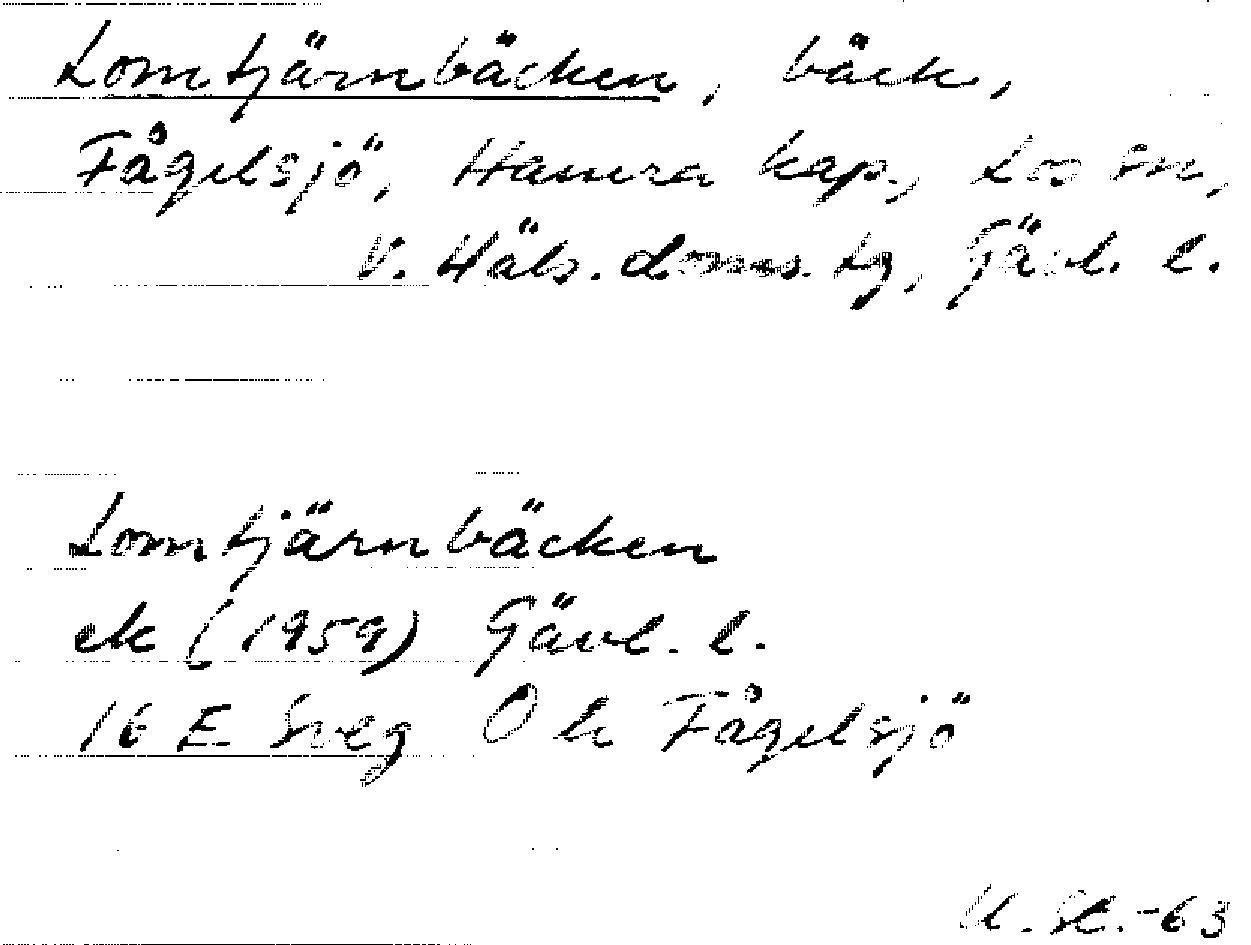 Lomtjärnbäcken, bäck,
Fågelsjö, Hamra kap., Los sn,
V. Häls. Doms. tg, Gävl. l.
Lomtjärnbäcken
ek (1959) Gävl. l.
16 E Sveg 0 h Fågelsjö
-63